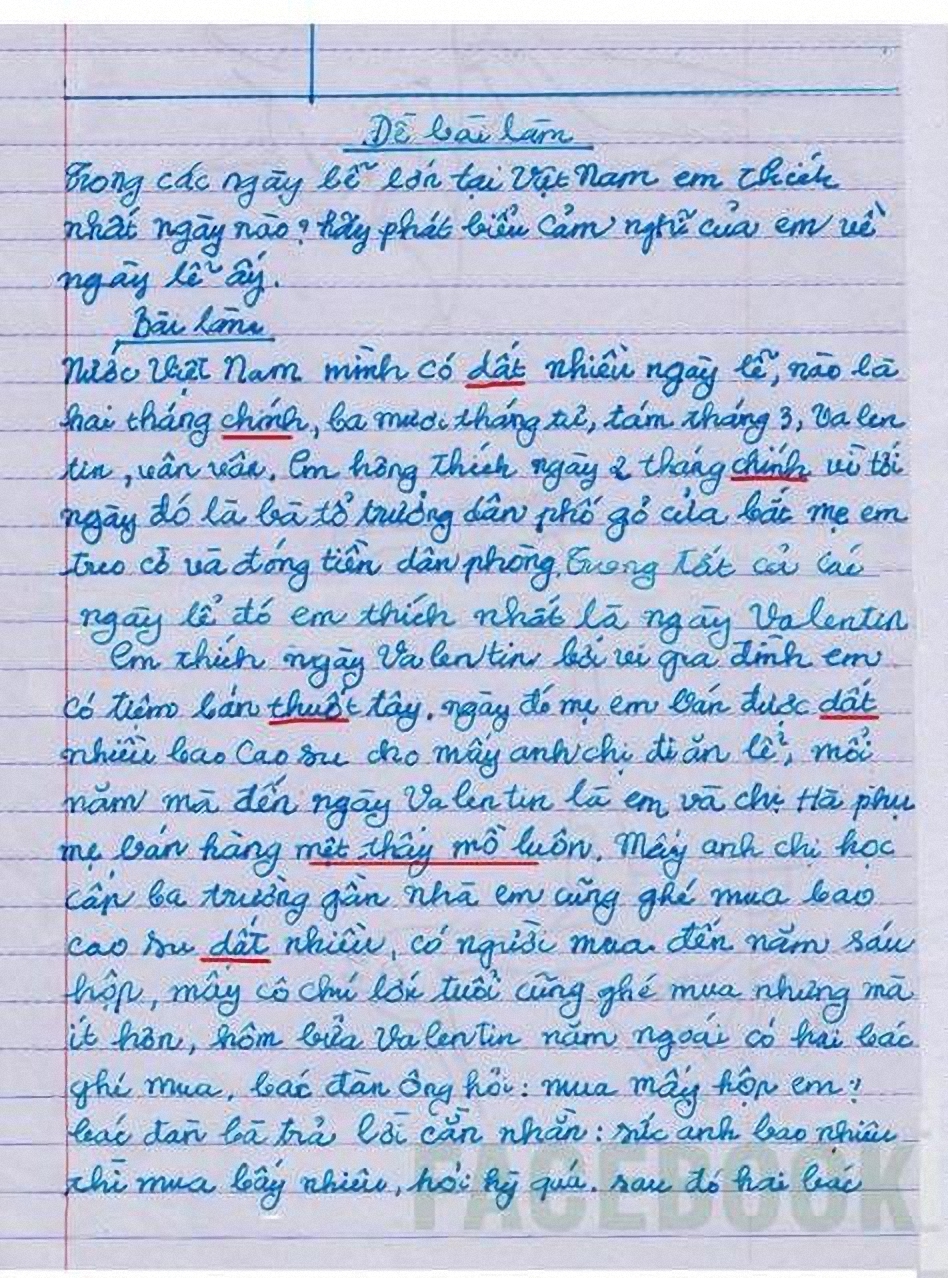 Đề bài làm
Trong các ngày lễ lớn tại Việt Nam em thích
nhất ngày nào? hãy phát biểu cảm nghĩ của em về
ngày lễ ấy.
Bài làm
Nước Việt Nam mình có dất nhiều ngày lễ, nào là
hai tháng chính, ba mươi tháng tư, tám tháng 3, Va len
tin, vân vân. Em hông thích ngày 2 tháng chính vì tới
ngày đó là bà tổ trưởng dân phố gỏ cửa bắt mẹ em
treo cờ và đóng tiền dân phòng. Trong tất cả các
ngày lể đó em thích nhất là ngày Va lentin
Em thích ngày Va lentin bởi vì gia đình em
có tiệm bán thuốt tây. ngày đó mẹ em bán được dất
nhiều bao cao su cho mấy anh chị đi ăn lể, mỗi
năm mà đến ngày Va lentin là em và chị Hà phụ
mẹ bán hàng mệt thấy mồ luôn. Mấy anh chị học
cấp ba trường gần nhà em cũng ghé mua bao
cao su dất nhiều, có người mua đến năm sáu
hộp, mấy cô chú lớn tuổi cũng ghé mua nhưng mà
ít hơn, hôm bửa Va lentin năm ngoái có hai bác
ghé mua, bác đàn ông hỏi: mua mấy hộp em?
bác đàn bà trả lời cằn nhằn: sức anh bao nhiêu
thì mua bấy nhiêu, hỏi kỳ quá. sau đó hai bác
FACEBOOK